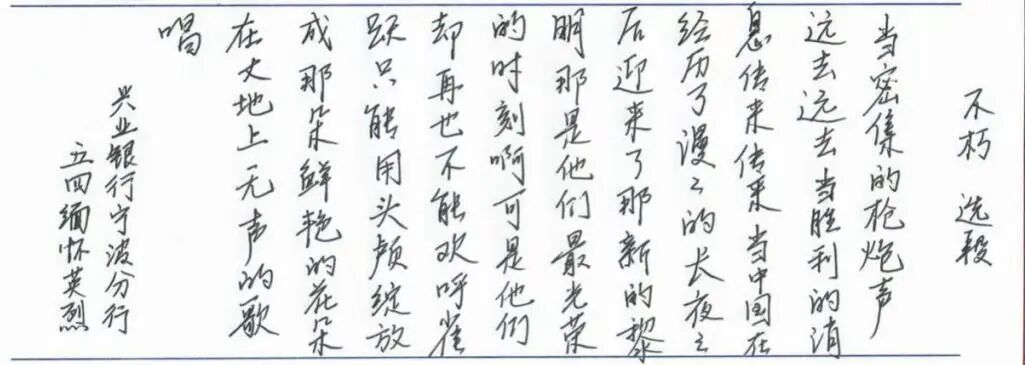 不朽 选段
当密集的枪炮声
远去远去当胜利的消
息传来传来当中国在
经历了漫々的长夜之
后迎来了那新的黎
明那是他们最光荣
的时刻啊可是他们
却再也不能欢呼雀
跃只能用头颅绽放
成那朵鲜艳的花朵
在大地上无声的歌
唱
兴业银行宁波分行
五四缅怀英烈